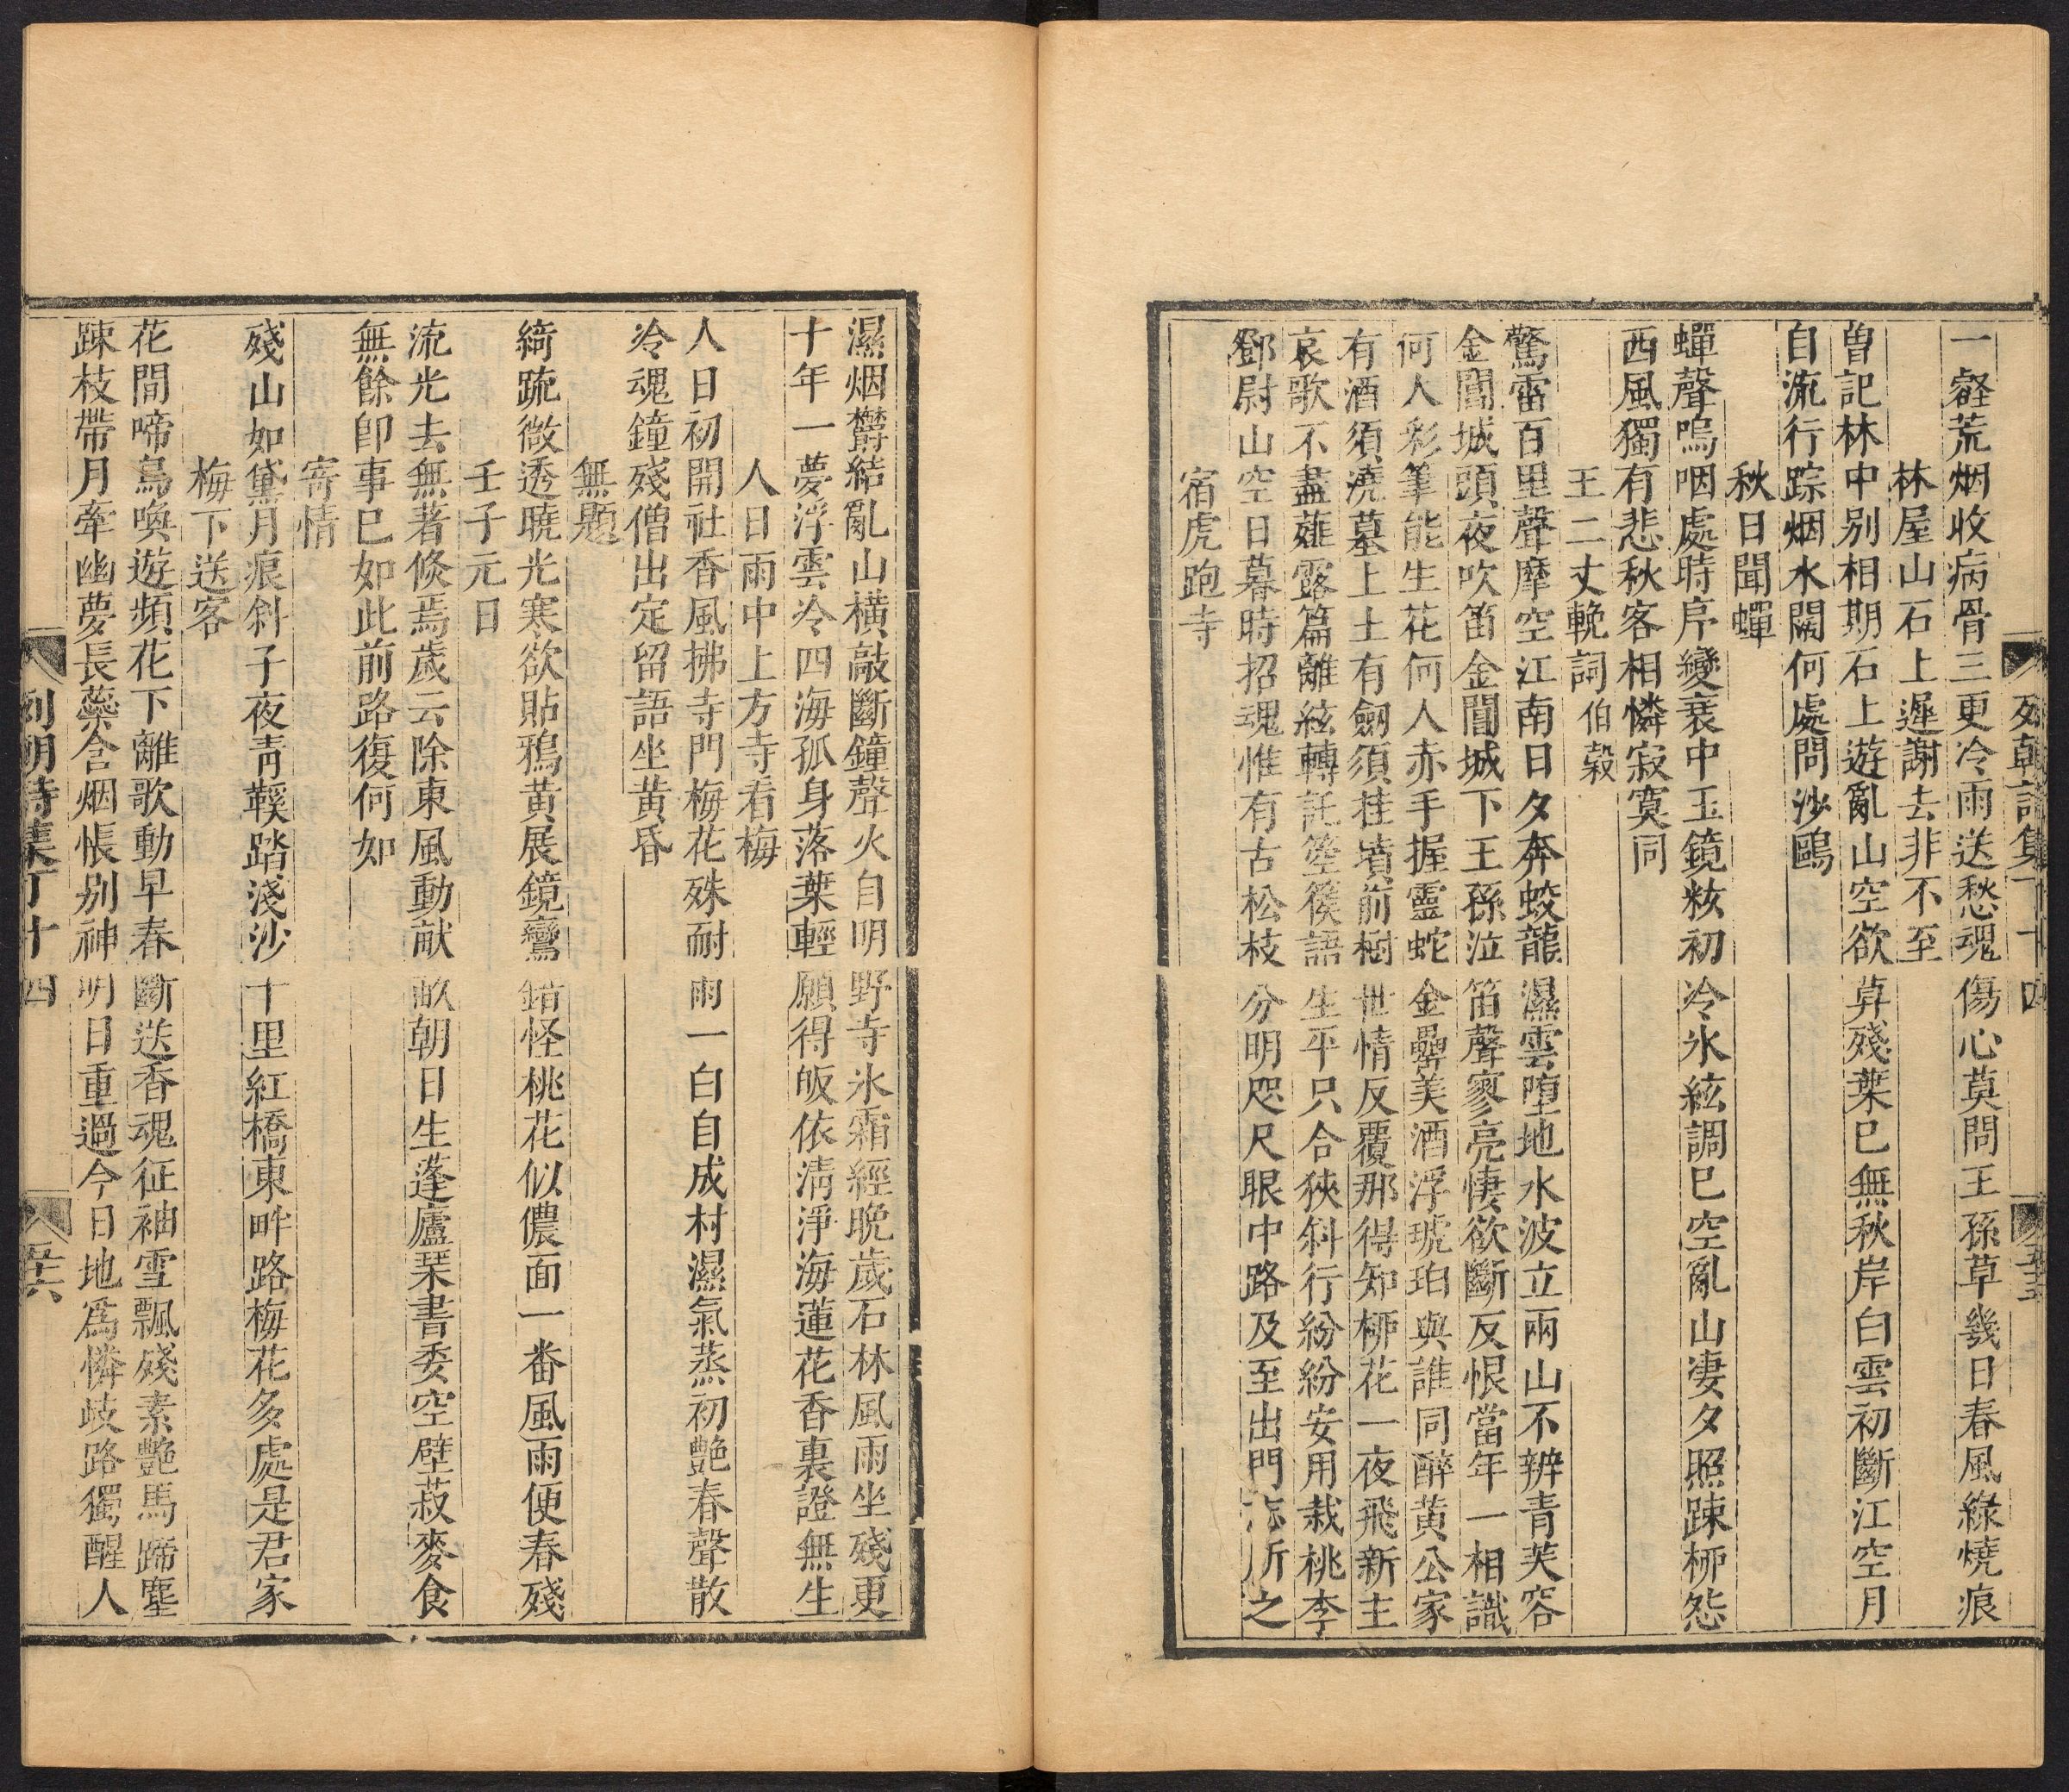 列朝詩集丁十四
五十五
一壑荒烟收病骨三更冷雨送愁魂傷心莫問王孫草幾日春風綠燒痕
林屋山石上遲謝去非不至
曽記林中别相期石上遊亂山空欲葬殘葉已無秋岸白雲初斷江空月
自流行踪烟水闊何處問沙鷗
秋日聞蟬
蟬聲嗚咽處時序變衰中玉鏡粧初冷氷絃調已空亂山凄夕照踈栁怨
西風獨有悲秋客相憐寂寞同
王二丈輓詞伯穀
驚雷百里聲摩空江南日夕奔蛟龍濕雲墮地水波立兩山不辨青芙容
金閶城頭夜吹笛金閶城下王孫泣笛聲寥亮悽欲斷反恨當年一相識
何人彩筆能生花何人赤手握靈蛇金罍美酒浮琥珀與誰同醉黄公家
有酒須澆墓上土有劒須挂墳前樹世情反覆那得知栁花一夜飛新主
哀歌不盡薤露篇離絃轉訴箜篌語生平只合狹斜行紛紛安用栽桃李
鄧尉山空日暮時招魂惟有古松枝分明咫尺眼中路及至出門忘所之
宿虎跑寺
濕烟欝結亂山横敲斷鐘聲火自明野寺氷霜經晚歲石林風雨坐殘更
十年一夢浮雲冷四海孤身落葉輕願得皈依清淨海蓮花香裏證無生
人日雨中上方寺看梅
人日初開社香風拂寺門梅花殊耐雨一白自成村濕氣蒸初艶春聲散
冷魂鐘殘僧出定留語坐黄昏
無題
綺䟽微透曉光寒欲貼鴉黄展鏡鸞錯怪桃花似儂面一番風雨便春殘
壬子元日
流光去無著倐焉歲云除東風動献畝朝日生蓬廬琹書委空壁菽麥食
無餘卽事已如此前路復何如
寄情
殘山如黛月痕斜子夜青鞵踏淺沙十里紅橋東畔路梅花多處是君家
梅下送客
花間啼鳥喚遊頻花下離歌動早春斷送香魂征袖雪飄殘素艶馬蹄塵
踈枝帶月牽幽夢長蘂含烟悵别神明日重過今日地爲憐歧路獨醒人
列朝詩集丁十四
五十六